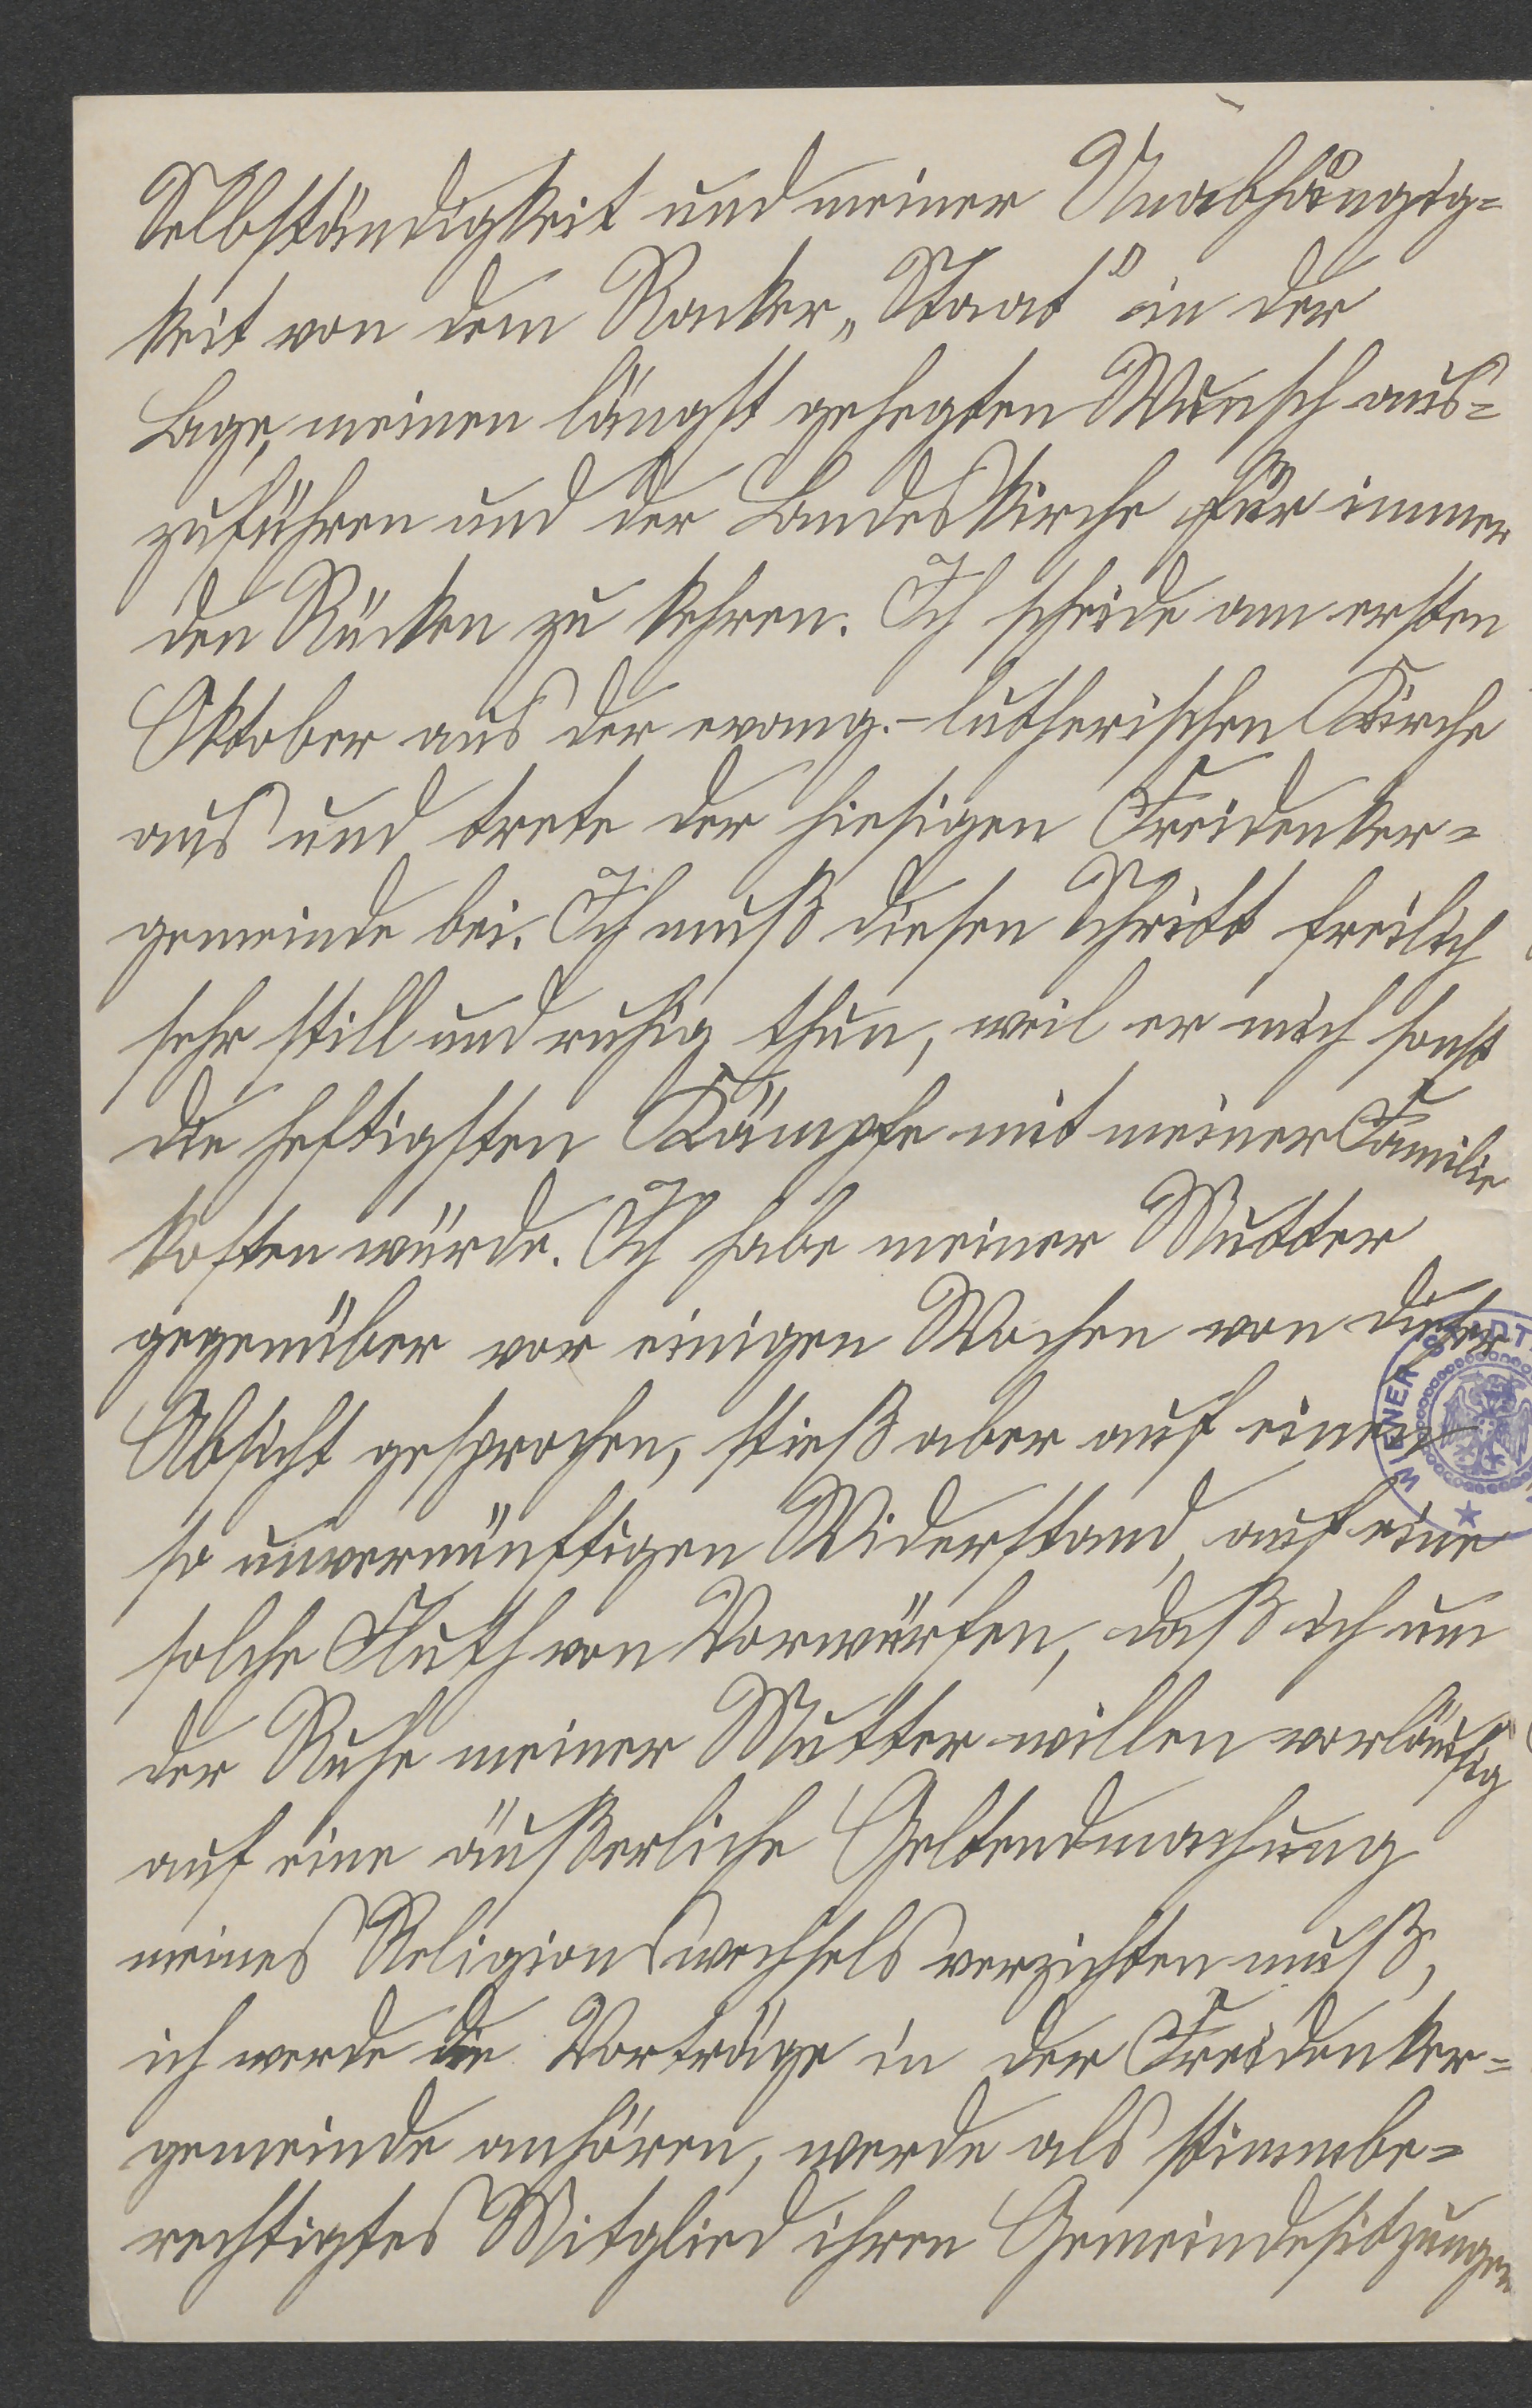 Selbständigkeit und meiner Unabhängig=
keit von dem Racker „Staat" in der
Lage, meinen längst gehegten Wunsch aus=
zuführen und der Landeskirche für immer
den Rücken zu kehren. Ich scheide am ersten
Oktober aus der evang.-lutherischen Kirche
aus und trete der hiesigen Freidenker=
gemeinde bei. Ich muß diesen Schritt freilich
sehr still und ruhig thun, weil er mich sonst
die heftigsten Kämpfe mit meiner Familie
kosten würde. Ich habe meiner Mutter
gegenüber vor einigen Wochen von dieser
Absicht gesprochen, stieß aber auf einen
so unvernünftigen Widerstand, auf eine
solche Fluth von Vorwürfen, daß ich um
der Ruhe meiner Mutter willen vorläufig
auf eine äußerliche Geltendmachung
meines Religionswechsels verzichten muß,
ich werde die Vorträge in der Freidenker=
gemeinde anhören, werde als stimmbe=
rechtigtes Mitglied ihren Gemeindesitzungen
WIENER STADT